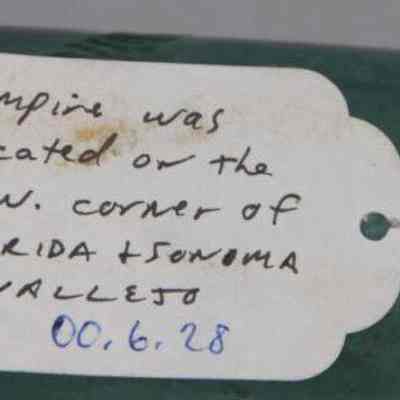 mpire was
cated on the
W. corner of
RIDA + SONOMA
VALLEJO
00.6.28